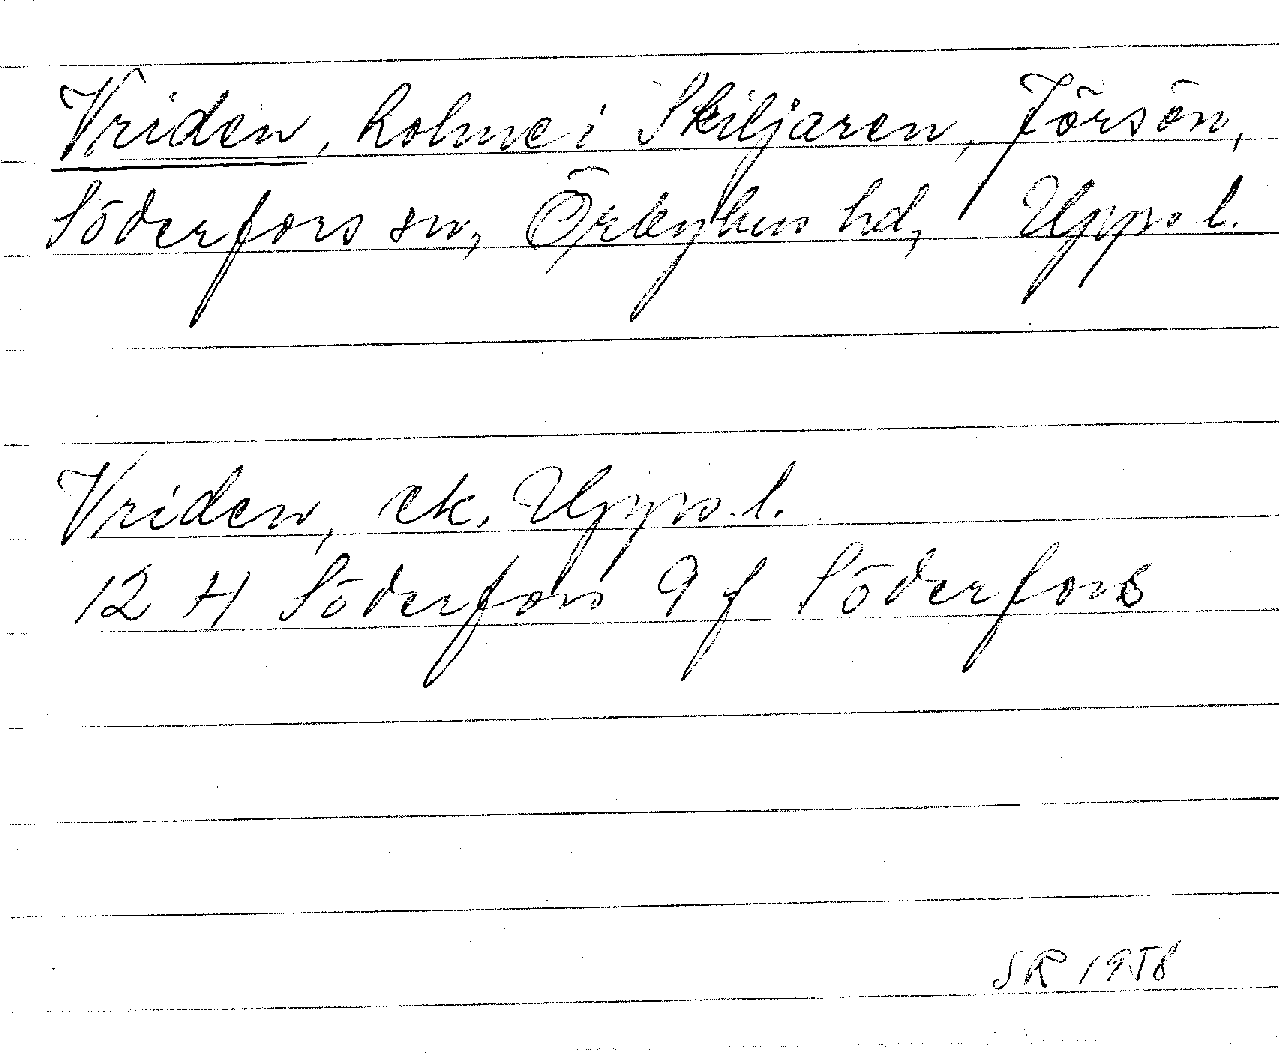 Vriden, holme i Skiljaren, Jörsön,
Söderfors sn, Örbyhus hd, Upps l.
Vriden, ek. Upps. l.
12 H Söderfors 9 f Söderfors
SR 1958